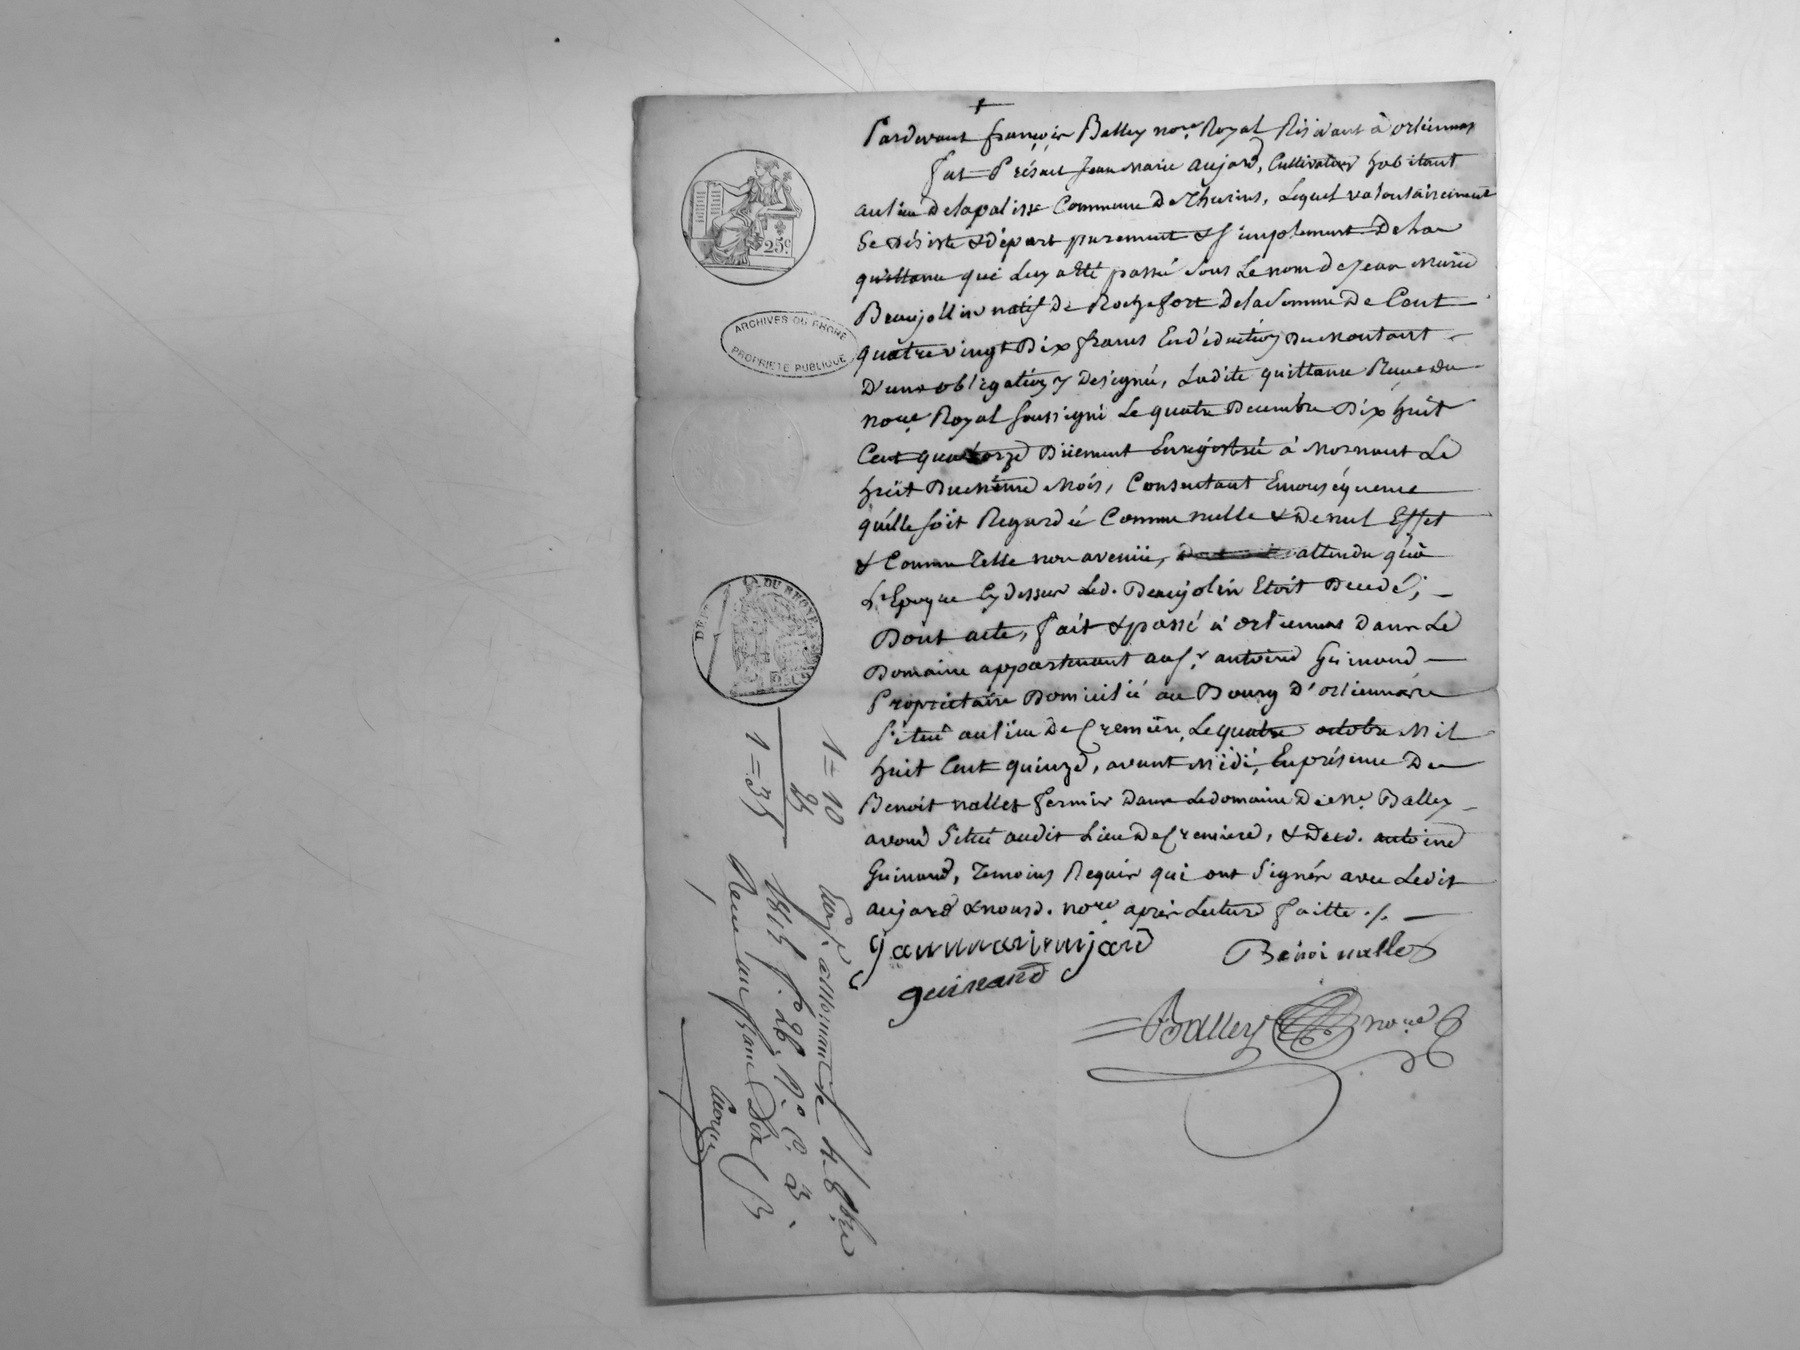 Pardevant françois Balley no.re Royal Résidant à orliennas
fut Présent Jean Marie aujard, Cultivateur habitant
au lieu delapalisse Commune De Thurins, Lequel volontairement
Se désiste & départ purement & Simplement De la
quittance qui Luy a été passé sous Le nom de Jean Marie
Beaujollin natif De Rochefort Dela Somme De Cent
quatre vingt Dix francs En déduction Du Montant
D'une obligation y Designée, Ladite quittance Reçue du
no.re Royal Soussigné Le quatre Decembre Dix huit
Cent quatorze Duement Enregistrée à Mornant Le
huit Du même Mois, Consentant En conséquence
qu'elle soit Regardée Comme nulle & De nul Effet
& Comme Telle non avenüe, attendu qu'à
L'Epoque Cy dessus Led. Beaujolin Etoit Decedé ;
Dont acte, fait & passé à orliennas Dans Le
Domaine appartenant au S.r antoine Guinand
Propriétaire Domicilié au Bourg D'orliennas
Situé au lieu De Cremière, Le quatre octobre Mil
huit Cent quinze, avant Midi, En présence De
Benoit nallet fermier Dans Le domaine De Me. Balley
avoué Situé audit Lieu De Cremiere, & Dud. antoine
Guinand, Temoins Requis qui ont Signés avec Ledit
aujard & nousd. no.re après Lecture faitte ./.
Jean marie aujard
Benoi nallet
guinand
Balley no.re
25c
ARCHIVES DU RHONE
PROPRIETE PUBLIQUE
DU RHONE
1 = 10
25
1 = 35
Enreg.é à Mornant le 4 8bre
1815 f. 28 R.o C. 3.
Reçu un franc Dix